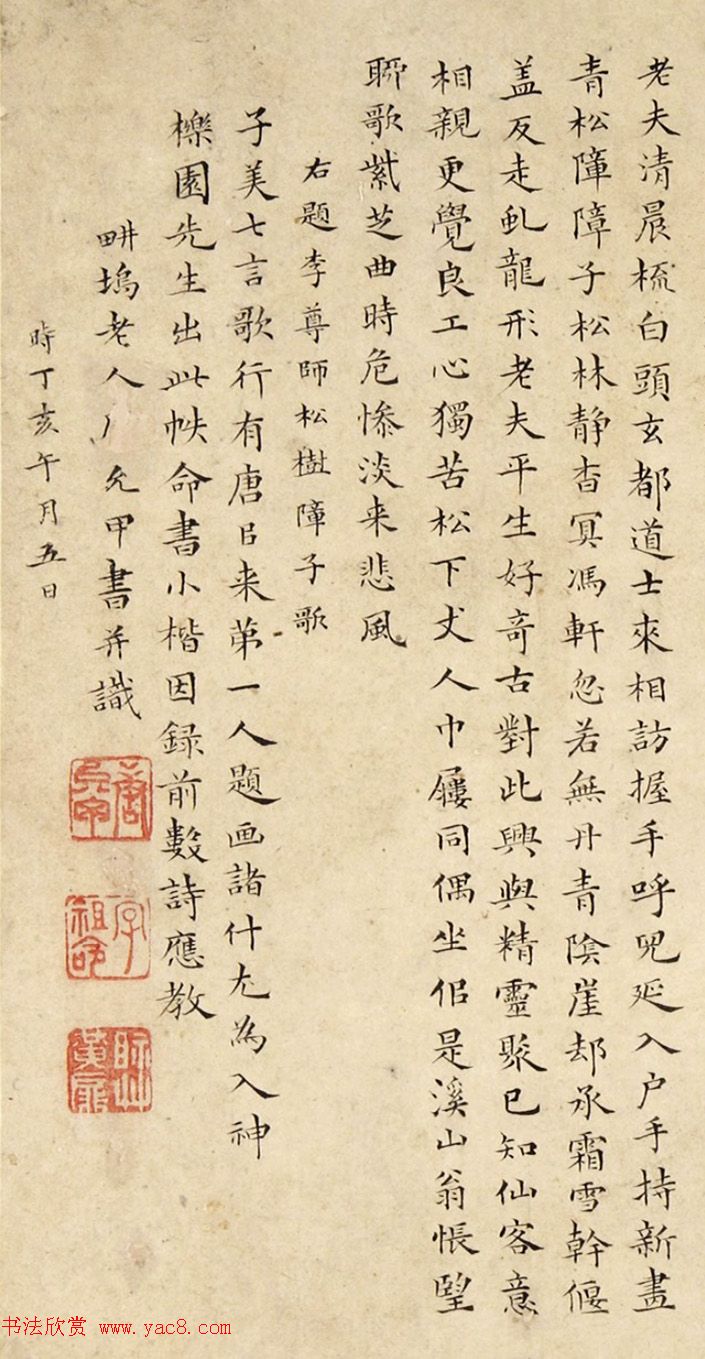 老夫清晨梳白頭玄都道士來相訪握手呼兒延入户手持新畫
青松障障子松林静杳冥馮軒忽若無丹青陰崖却承霜雪幹偃
盖反走虬龍形老夫平生好奇古對此興與精靈聚已知仙客意
相親更覺良工心獨苦松下丈人巾屨同偶坐佀是溪山翁悵望
聊歌紫芝曲時危慘淡来悲風
右題李尊師松樹障子歌
子美七言歌行有唐㠯来第一人題画諸什尤為入神
櫟園先生出此帙命書小楷因録前數詩應教
畊塢老人厂允甲書并識
時丁亥午月五日
唐允甲
字祖命
书法欣赏 www.yac8.com